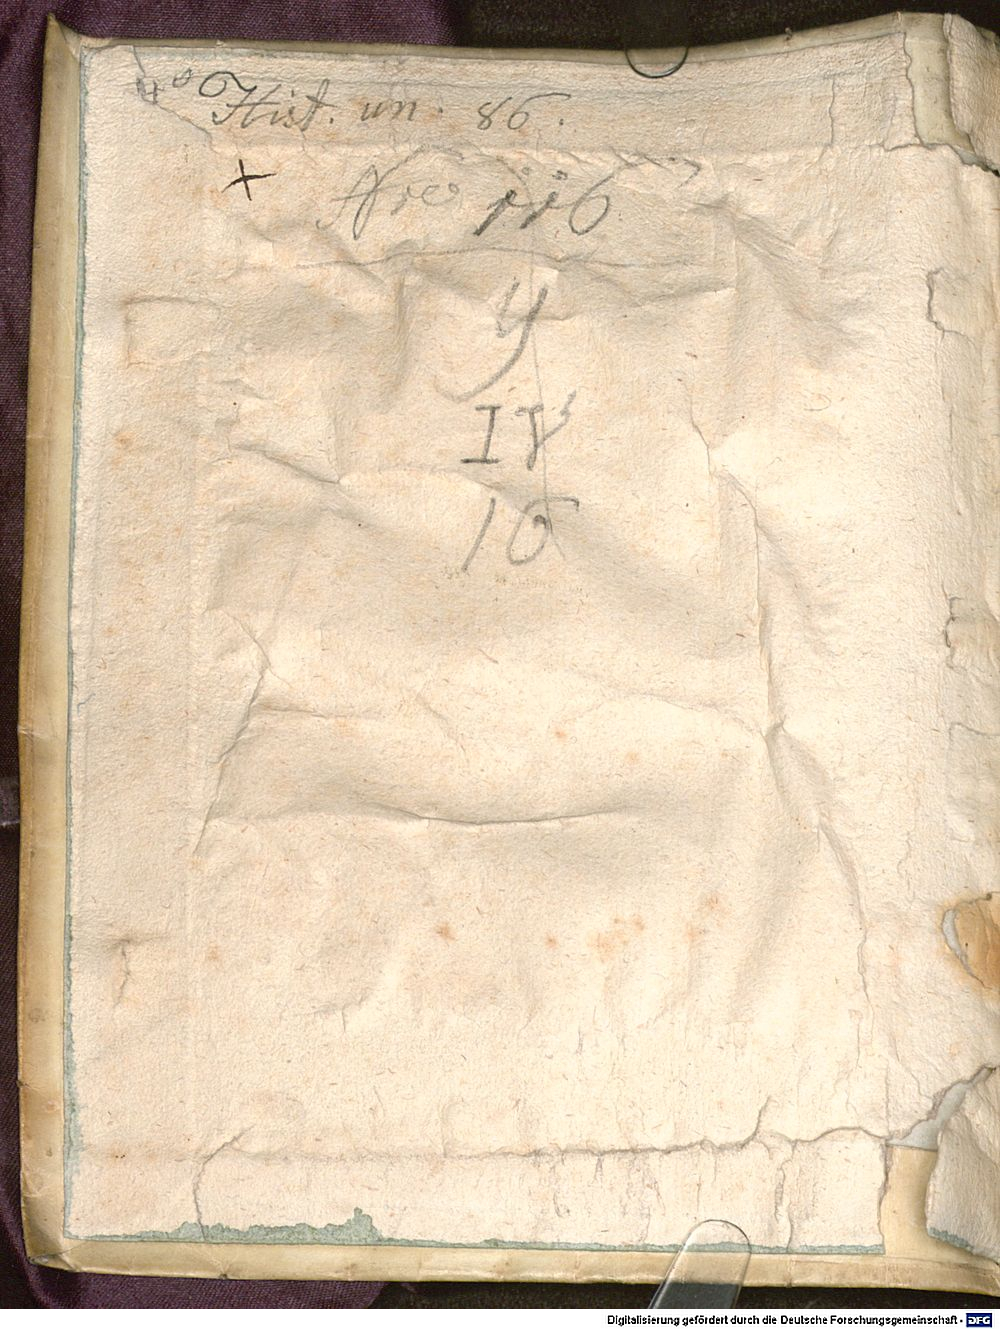 4° Hist. un. 86.
+
Nro 116
y
IV
16
Digitalisierung gefördert durch die Deutsche Forschungsgemeinschaft - DFG